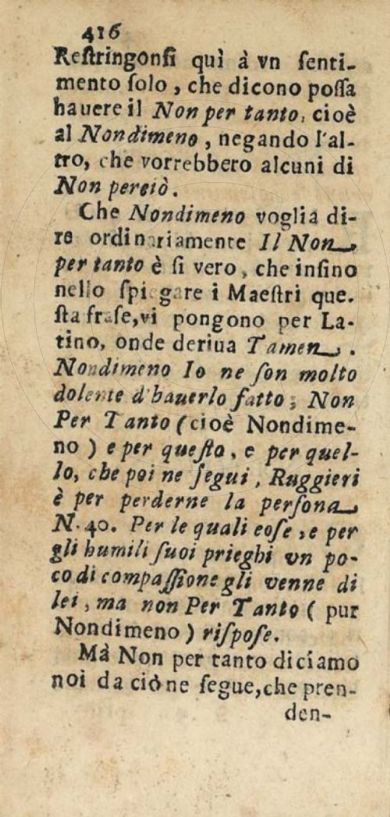 416
Reſtringonſi quì à vn ſenti-
mento ſolo, che dicono poſſa
hauere il Non per tanto, cioè
al Nondimeno, negando l'al-
tro, che vorrebbero alcuni di
Non perciò.
Che Nondimeno voglia di-
re ordinariamente Il Non
per tanto è ſi vero, che inſino
nello ſpiegare i Maeſtri que.
ſta fraſe, vi pongono per La-
tino, onde deriua Tamen.
Nondimeno Io ne ſon molto
dolente d'hauerlo fatto; Non
Per Tanto (cioè Nondime-
no) e per queſto, e per quel-
lo, che poi ne ſegui, Ruggieri
è per perderne la perſona
N. 40. Per le quali coſe, e per
gli humili ſuoi prieghi vn po-
co di compaſſione gli venne di
lei, ma non Per Tanto (pur
Nondimeno) riſpoſe.
Mà Non per tanto diciamo
noi da ciò ne ſegue, che pren-
den-